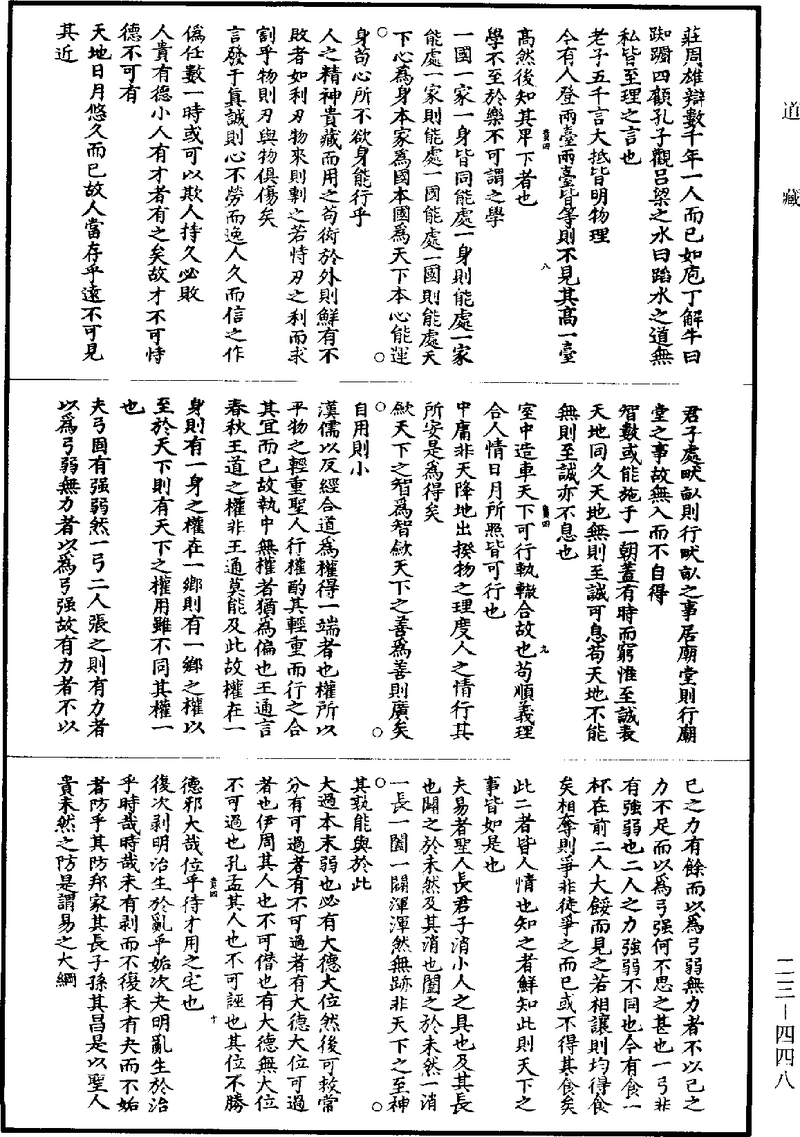 道藏
莊周雄辯數千年一人而已如庖丁解牛曰
踟躅四顧孔子觀呂梁之水曰蹈水之道無
私皆至理之言也
老子五千言大抵皆明物理
今有人登兩臺兩臺皆等則不見其高一臺
高然後知其卑下者也
學不至於樂不可謂之學
一國一家一身皆同能處一身則能處一家
能處一家則能處一國能處一國則能處天
下心為身本家為國本國為天下本心能運
身苟心所不欲身能行乎
人之精神貴藏而用之苟衒於外則鮮有不
敗者如利刃物來則剸之若恃刃之利而求
割乎物則刃與物俱傷矣
言發于真誠則心不勞而逸人久而信之作
偽任數一時或可以欺人持久必敗
人貴有德小人有才者有之矣故才不可恃
德不可有
天地日月悠久而已故人當存乎遠不可見
其近
君子處畎畝則行畎畝之事居廟堂則行廟
堂之事故無入而不自得
智數或能施于一朝蓋有時而窮惟至誠與
天地同久天地無則至誠可息苟天地不能
無則至誠亦不息也
室中造車天下可行軌轍合故也苟順義理
合人情日月所照皆可行也
中庸非天降地出揆物之理度人之情行其
所安是為得矣
歛天下之智為智歛天下之善為善則廣矣
自用則小
漢儒以反經合道為權得一端者也權所以
平物之輕重聖人行權酌其輕重而行之合
其宜而已故執中無權者猶為偏也王通言
春秋王道之權非王通莫能及此故權在一
身則有一身之權在一鄉則有一鄉之權以
至於天下則有天下之權用雖不同其權一
也
夫弓固有强弱然一弓二人張之則有力者
以為弓弱無力者以為弓强故有力者不以
己之力有餘而以為弓弱無力者不以己之
力不足而以為弓强何不思之甚也一弓非
有强弱也二人之力強弱不同也今有食一
杯在前二人大餒而見之若相讓則均得食
矣相奪則爭非徒爭之而已或不得其食矣
此二者皆人情也知之者鮮知此則天下之
事皆如是也
夫易者聖人長君子消小人之具也及其長
也闢之於未然及其消也闔之於未然一消
一長一闔一闢渾渾然無跡非天下之至神
其孰能與於此
大過本末弱也必有大德大位然後可救當
分有可過者有不可過者有大德大位可過
者也伊周其人也不可僭也有大德無大位
不可過也孔孟其人也不可誣也其位不勝
德邪大哉位乎待才用之宅也
復次剥明治生於亂乎姤次夬明亂生於治
乎時哉時哉未有剥而不復未有夬而不姤
者防乎其防邦家其長子孫其昌是以聖人
貴未然之防是謂易之大綱
貴四
八
貴四
九
貴四
十
二三—四四八